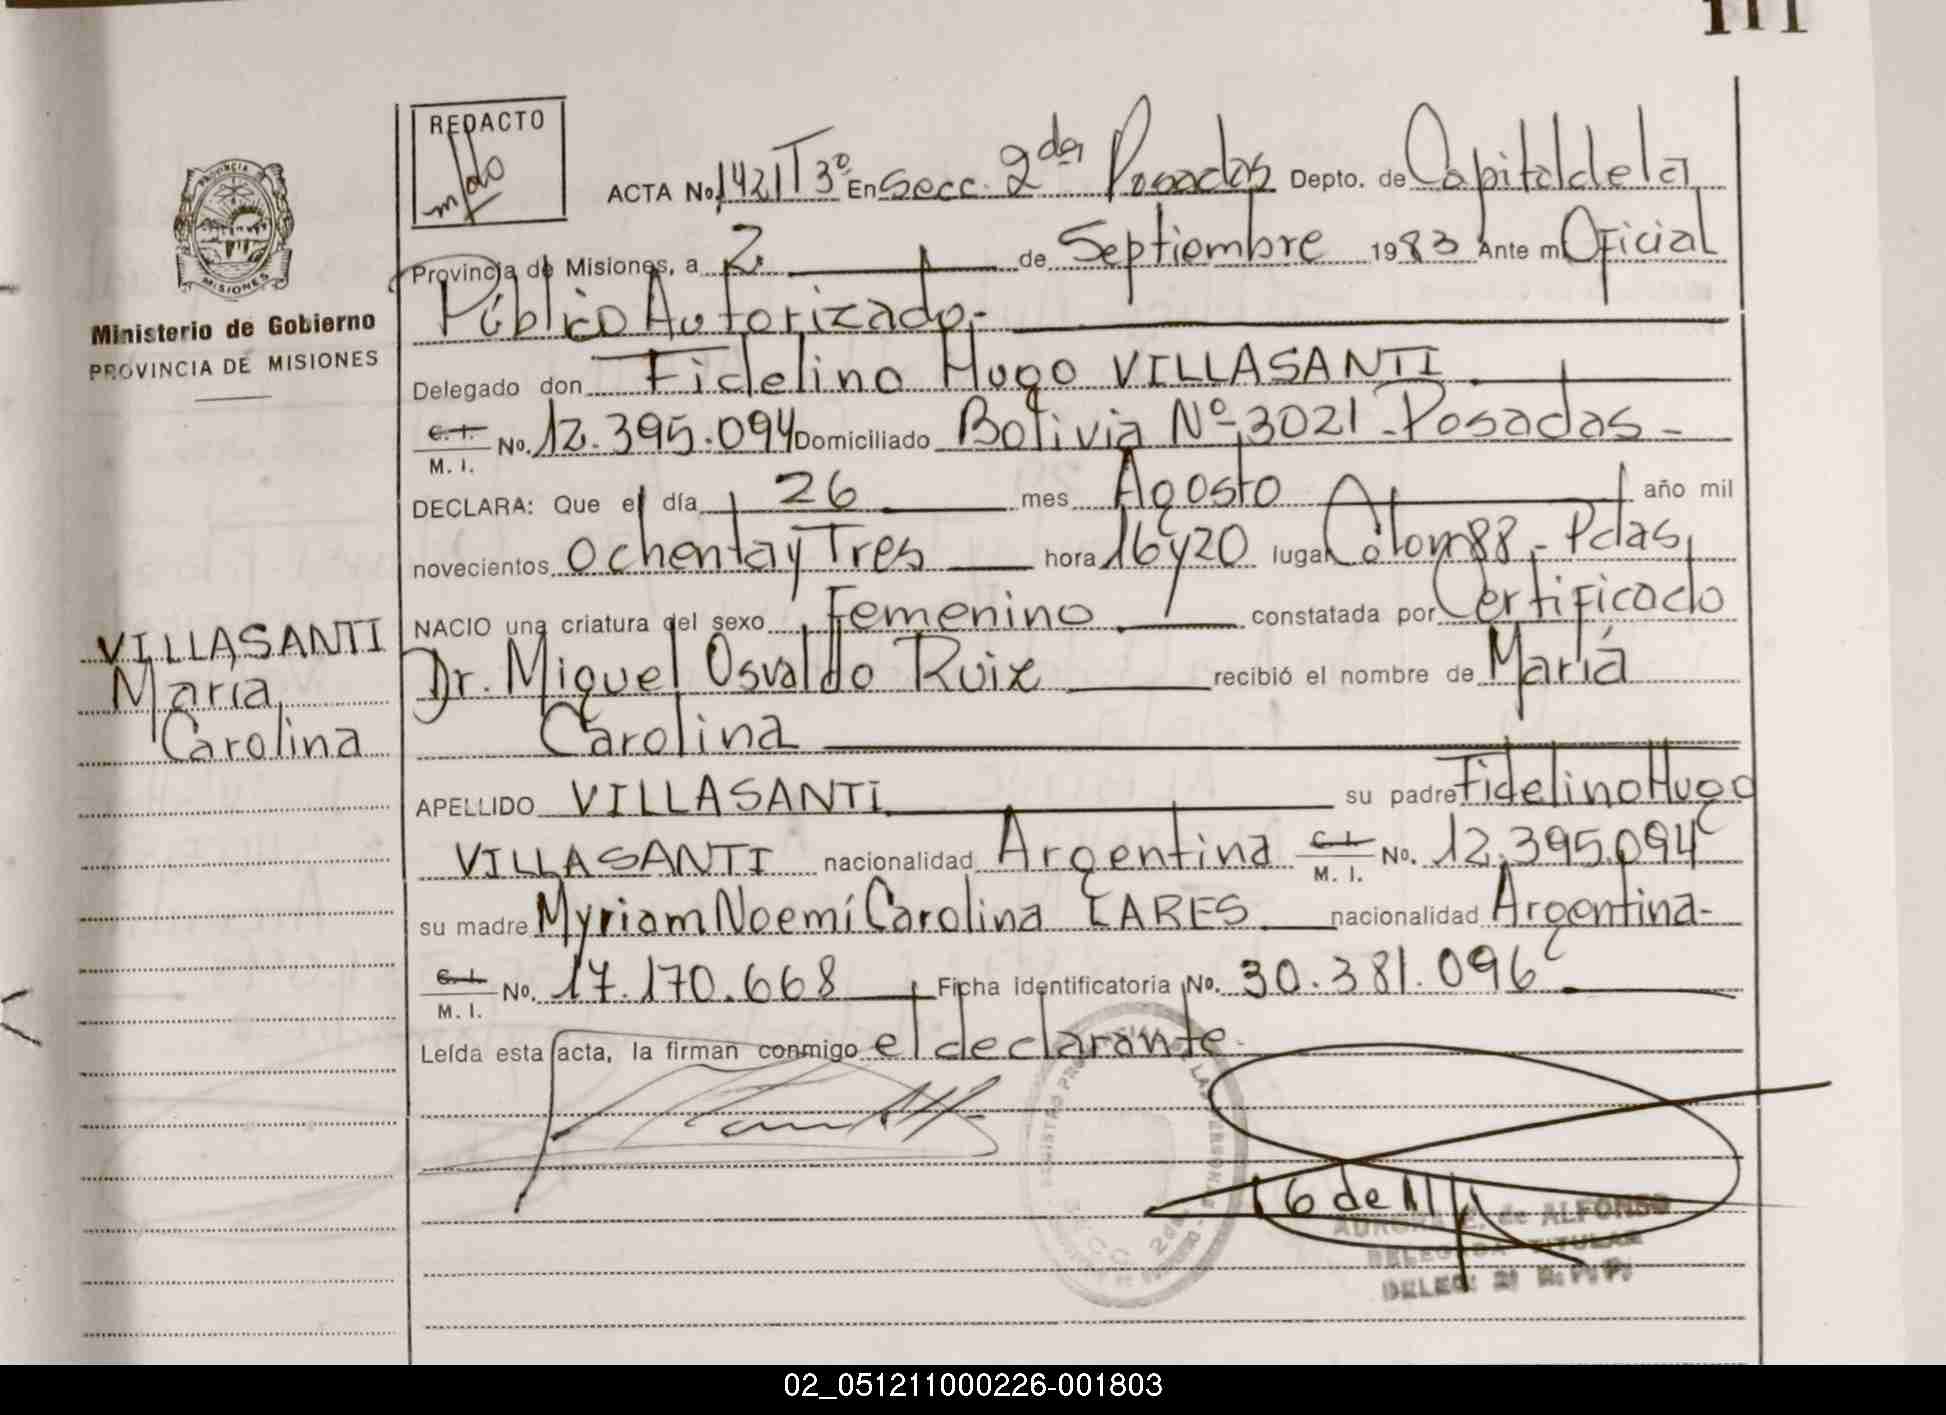 111
REDACTO
ACTA No. 1421 T 3º En Secc. 2da Posadas Depto. de Capital de la
Provincia de Misiones, a 2 de Septiembre 1983 Ante mi Oficial
Público Autorizado.-
Delegado don Fidelino Hugo VILLASANTI
C. I. M. I. No. 12.395.094 Domiciliado Bolivia Nº 3021 - Posadas -
DECLARA: Que el día 26 mes Agosto año mil
novecientos Ochenta y Tres hora 16 y 20 lugar Colon 88 - Pdas,
NACIO una criatura del sexo Femenino constatada por Certificado
Dr. Miguel Osvaldo Ruix recibió el nombre de María
Carolina
APELLIDO VILLASANTI su padre Fidelino Hugo
VILLASANTI nacionalidad Argentina C. I. M. I. No. 12.395.094
su madre Myriam Noemí Carolina nacionalidad Argentina -
C. I. M. I. No. 17.170.668 Ficha identificatoria No. 30.381.096
Leída esta acta, la firman conmigo el declarante.
AURORA E. de ALFONSO
DELEGADA TITULAR
PROVINCIA DE
MISIONES
Ministerio de Gobierno
PROVINCIA DE MISIONES
VILLASANTI
María
Carolina
02_051211000226-001803